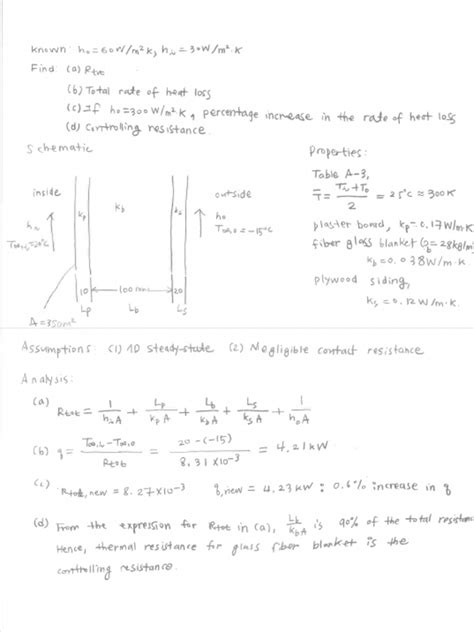 known: ho=60W/m²K, hi=30W/m²·K
Find: (a) Rtot
(b) Total rate of heat loss
(c) If ho=300W/m²K, percentage increase in the rate of heat loss
(d) Controlling resistance.
Schematic
inside
outside
kp
kb
ks
ho
T∞,o=-15°C
10
100 mm
20
Lp
Lb
Ls
A=350m²
Properties:
Table A-3,
= 25°C ≈ 300K
plaster board, kp=0.17W/m·K
fiber glass blanket
kb=0.038W/m·K
plywood siding,
ks=0.12W/m·K
Assumptions: (1) 1D steady-state (2) Negligible contact resistance
Analysis:
(a) Rtot = 1/hiA + Lp/kpA + Lb/kbA + Ls/ksA + 1/hoA
(b) q = T∞,i-T∞,o/Rtot = 20-(-15)/8.31×10⁻³ = 4.21kW
(c) Rtot,new = 8.27×10⁻³ q,new = 4.23kW : 0.6% increase in q
(d) From the expression for Rtot in (a), Lb/kbA is 90% of the total resistance
Hence, thermal resistance for glass fiber blanket is the
controlling resistance.